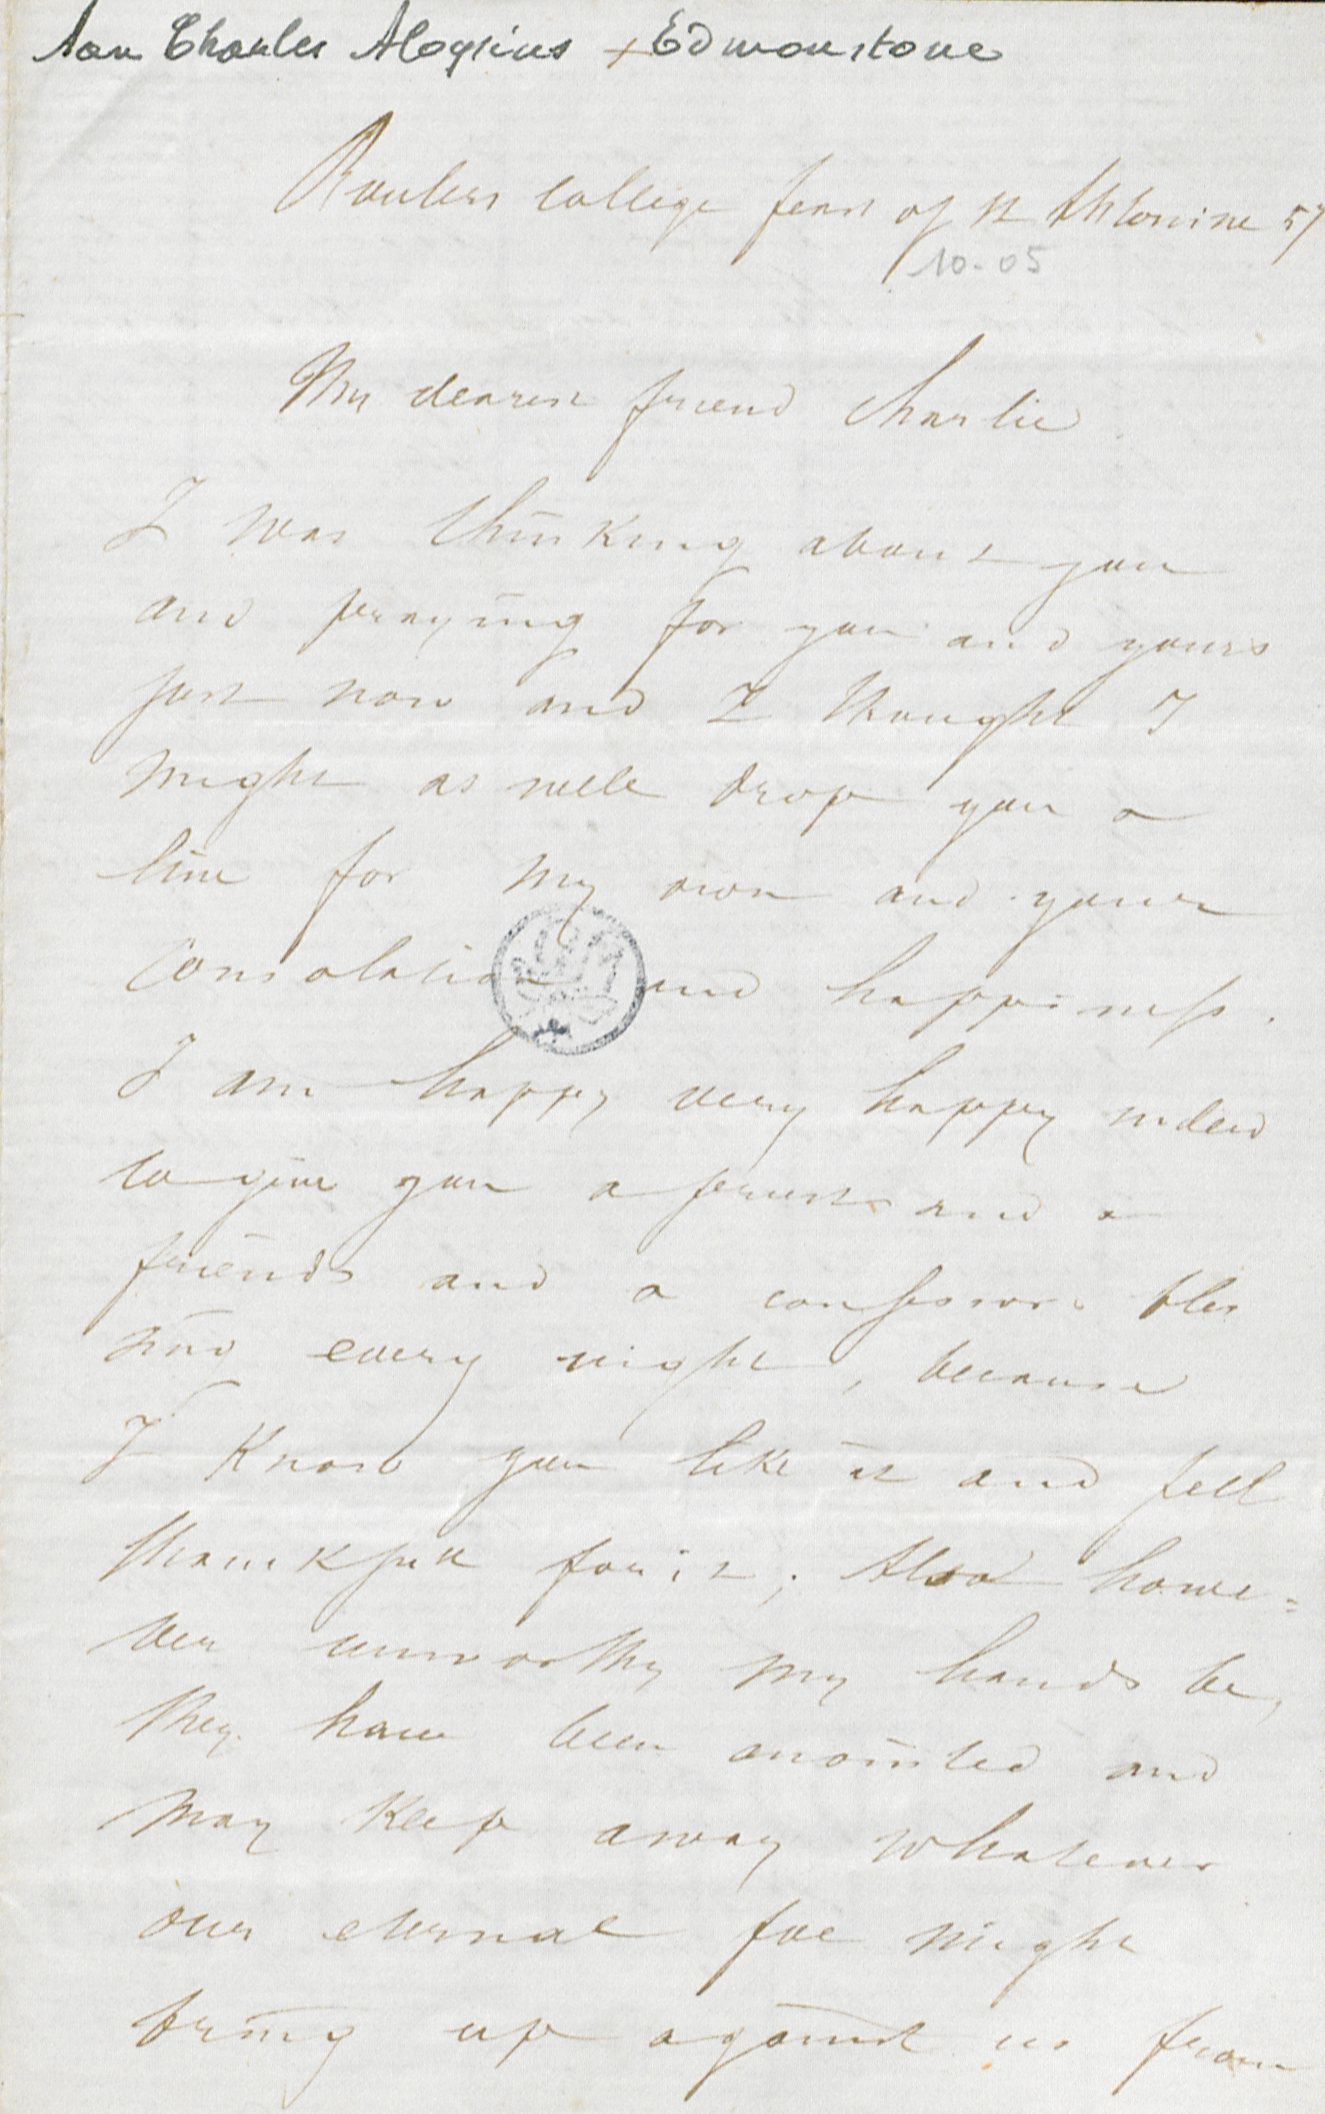 Aan Charles Aloysius + Edmonstone
Roulers College feast of St Antonine 57
10-05
My dearest friend Charlie
I was thinking about you
and praying for you and yours
just now and I thought I
might as well drop you a
line for my own and your
consolation and happiness.
I am happy very happy indeed
to give you a priests and a
friends and a confessors bles
sing every night, because
I know you like it and feel
thankful for it; Also howe=
ver unworthy my hands be,
they have been anointed and
may keep away whatever
our eternal foe might
bring up against us from